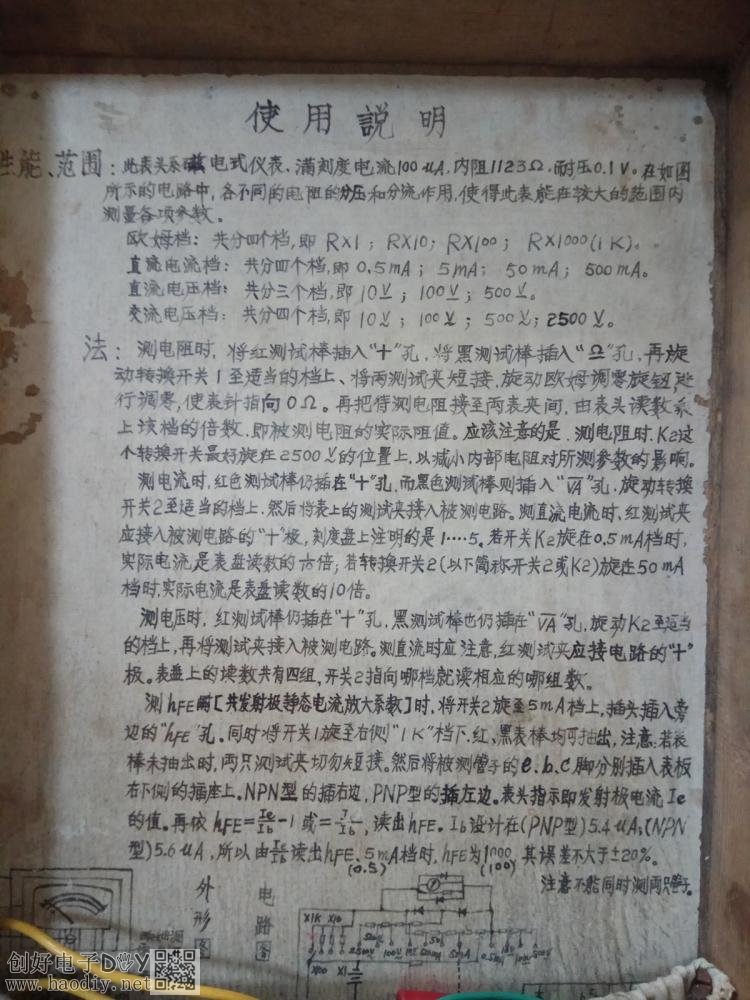 使用説明
性能、范围：此表头系磁电式仪表．满刻度电流100uA．内阻1123Ω．耐压0.1V。在如图
所示的电路中，各不同的电阻的分压和分流作用，使得此表能在较大的范围内
测量各项参数。
欧姆档：共分四个档，即 RX1；RX10；RX100；RX1000(1K)。
直流电流档：共分四个档，即 0.5mA；5mA；50mA；500mA。
直流电压档：共分三个档，即 10V；100V；500V。
交流电压档：共分四个档，即 10V；100V；500V；2500V。
法：测电阻时，将红测试棒插入“十”孔，将黑测试棒插入“Ω”孔，再旋
动转换开关1至适当的档上、将两测试夹短接，旋动欧姆调零旋钮进
行调零，使表针指向0Ω。再把待测电阻接至两表夹间，由表头读数乘
上该档的倍数，即被测电阻的实际阻值。应该注意的是，测电阻时，K2这
个转换开关最好旋在2500V的位置上，以减小内部电阻对所测参数的影响。
测电流时，红色测试棒仍插在“十”孔，而黑色测试棒则插入“VA”孔．旋动转换
开关2至适当的档上．然后将表上的测试夹接入被测电路。测直流电流时，红测试夹
应接入被测电路的“十”极，刻度盘上注明的是1……5。若开关K2旋在0.5mA档时，
实际电流是表盘读数的 倍；若转换开关2(以下简称开关2或K2)旋在50mA
档时，实际电流是表盘读数的10倍。
测电压时，红测试棒仍插在“十”孔，黑测试棒也仍插在“VA”孔，旋动K2至适当
的档上，再将测试夹接入被测电路。测直流时应注意，红测试夹应接电路的“十”
极。表盘上的读数共有四组，开关2指向哪档就读相应的哪组数。
测hFE［共发射极静态电流放大系数］时，将开关2旋至5mA档上，插头插入旁
边的“hFE”孔。同时将开关1旋至右侧“1K”档下．红、黑表棒均可抽出，注意：若表
棒未抽出时，两只测试夹切勿短接。然后将被测管子的e.b.c脚分别插入表板
右下侧的插座上。NPN型的插右边，PNP型的插左边。表头指示即发射极电流Ie
的值。再依hFE=Ie/Ib-1 或= /Ib，读出hFE。Ib设计在(PNP型)5.4uA，(NPN
型)5.6uA，所以由Ie/Ib读出hFE．5mA档时，hFE为1000，其误差不大于±20%。
(0.5) (100)
注意不能同时测两只管子。
外形图
电路图
X1K X10
X100 X1
创好电子DIY
www.haodiy.net